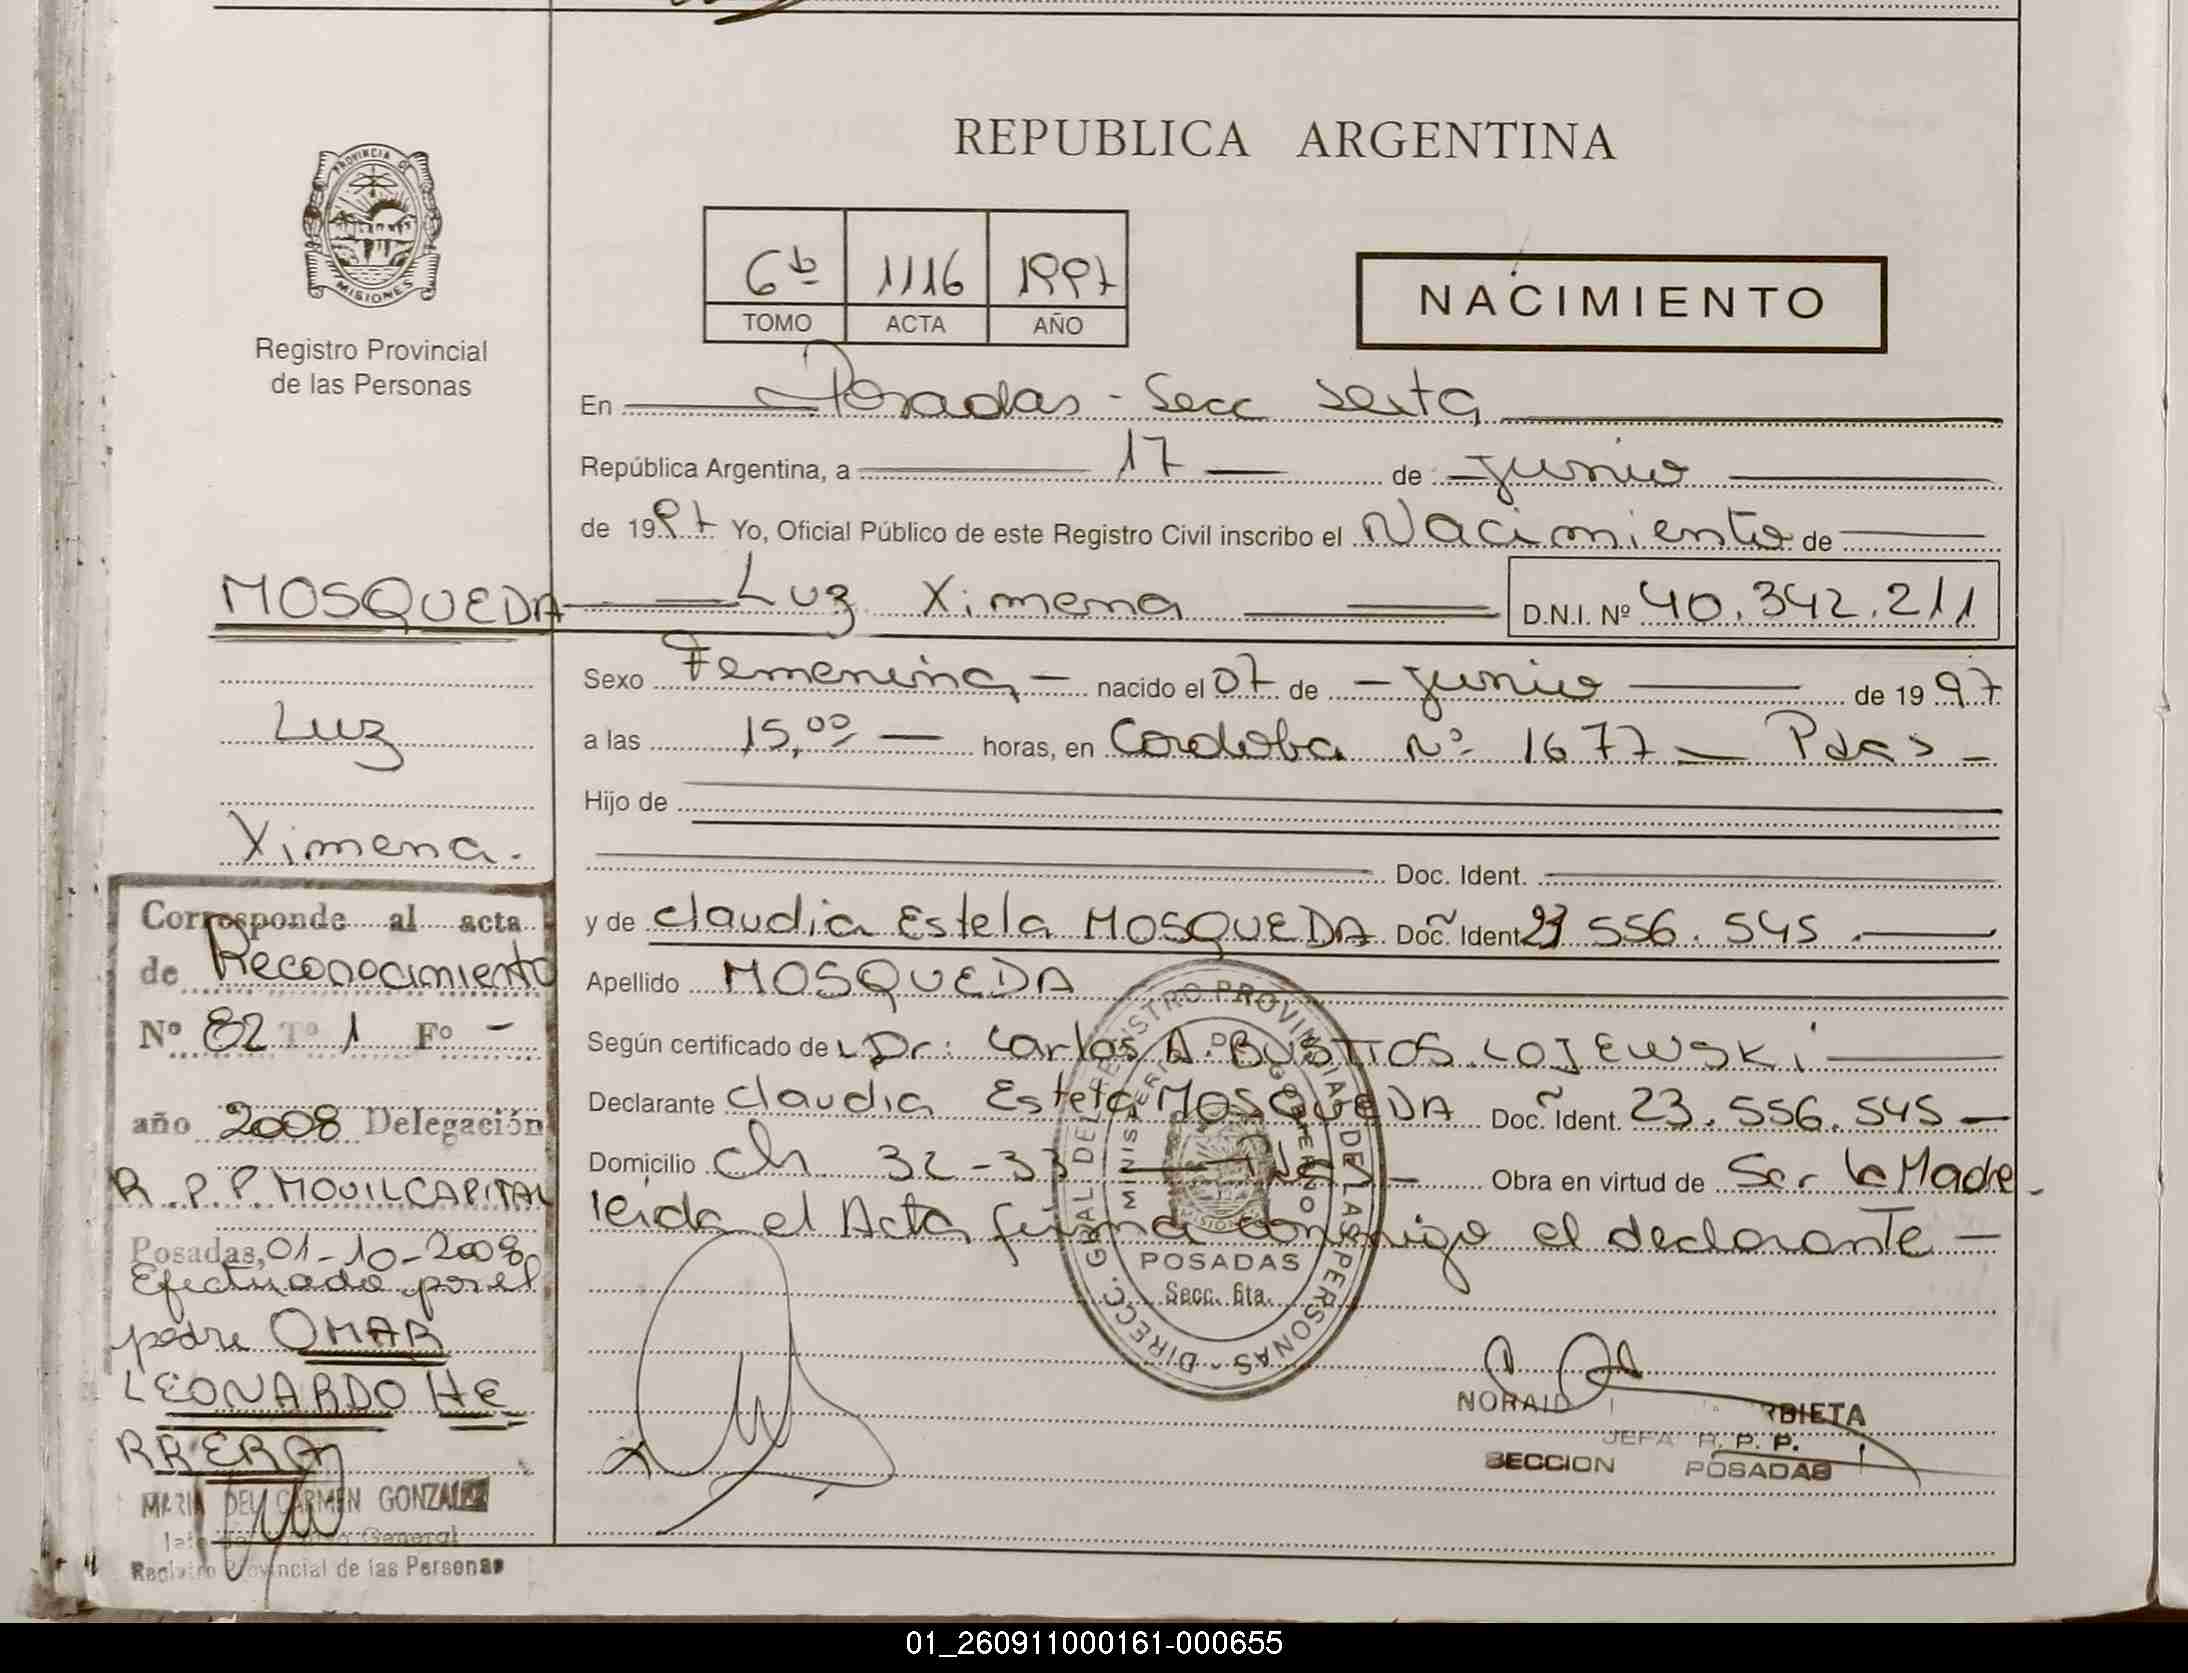 REPUBLICA ARGENTINA
PROVINCIA DE
MISIONES
Registro Provincial
de las Personas
6b 1116 1997
TOMO ACTA AÑO
NACIMIENTO
En Posadas - Secc Sexta
República Argentina, a 17 de junio
de 1997 Yo, Oficial Público de este Registro Civil inscribo el Nacimiento de
MOSQUEDA Luz Ximena D.N.I. Nº 40.342.211
Sexo Femenina - nacido el 07 de - junio de 1997
Luz
a las 15,00 horas, en Cordoba Nº 1677 - Pdas -
Hijo de
Ximena.
Doc. Ident.
y de Claudia Estela MOSQUEDA Doc. Ident 23 556.545.
Apellido MOSQUEDA
Según certificado de Dr: Carlos A. BUSTTOS LOJEWSKi
Declarante Claudia Estela MOSQUEDA Doc. Ident. 23.556.545 -
Domicilio Ch 32-33 - Obra en virtud de Ser la Madre.
leida el Acta firma conmigo el declarante -
Corresponde al acta
de Reconocimiento
Nº 82 Tº 1 Fº -
año 2008 Delegación
R.P.P. MOVIL CAPITAL
Posadas, 01-10-2008
Efectuado por el
padre OMAR
LEONARDO HE
RRERA
MARIA DEL CARMEN GONZALEZ
General
Registro Provincial de las Personas
DIRECC. GRAL DEL REGISTRO PROVINCIAL DE LAS PERSONAS
MINISTERIO DE GOBIERNO
MISIONES
POSADAS
Secc. 6ta.
JEFA R. P. P.
SECCION POSADAS
01_260911000161-000655